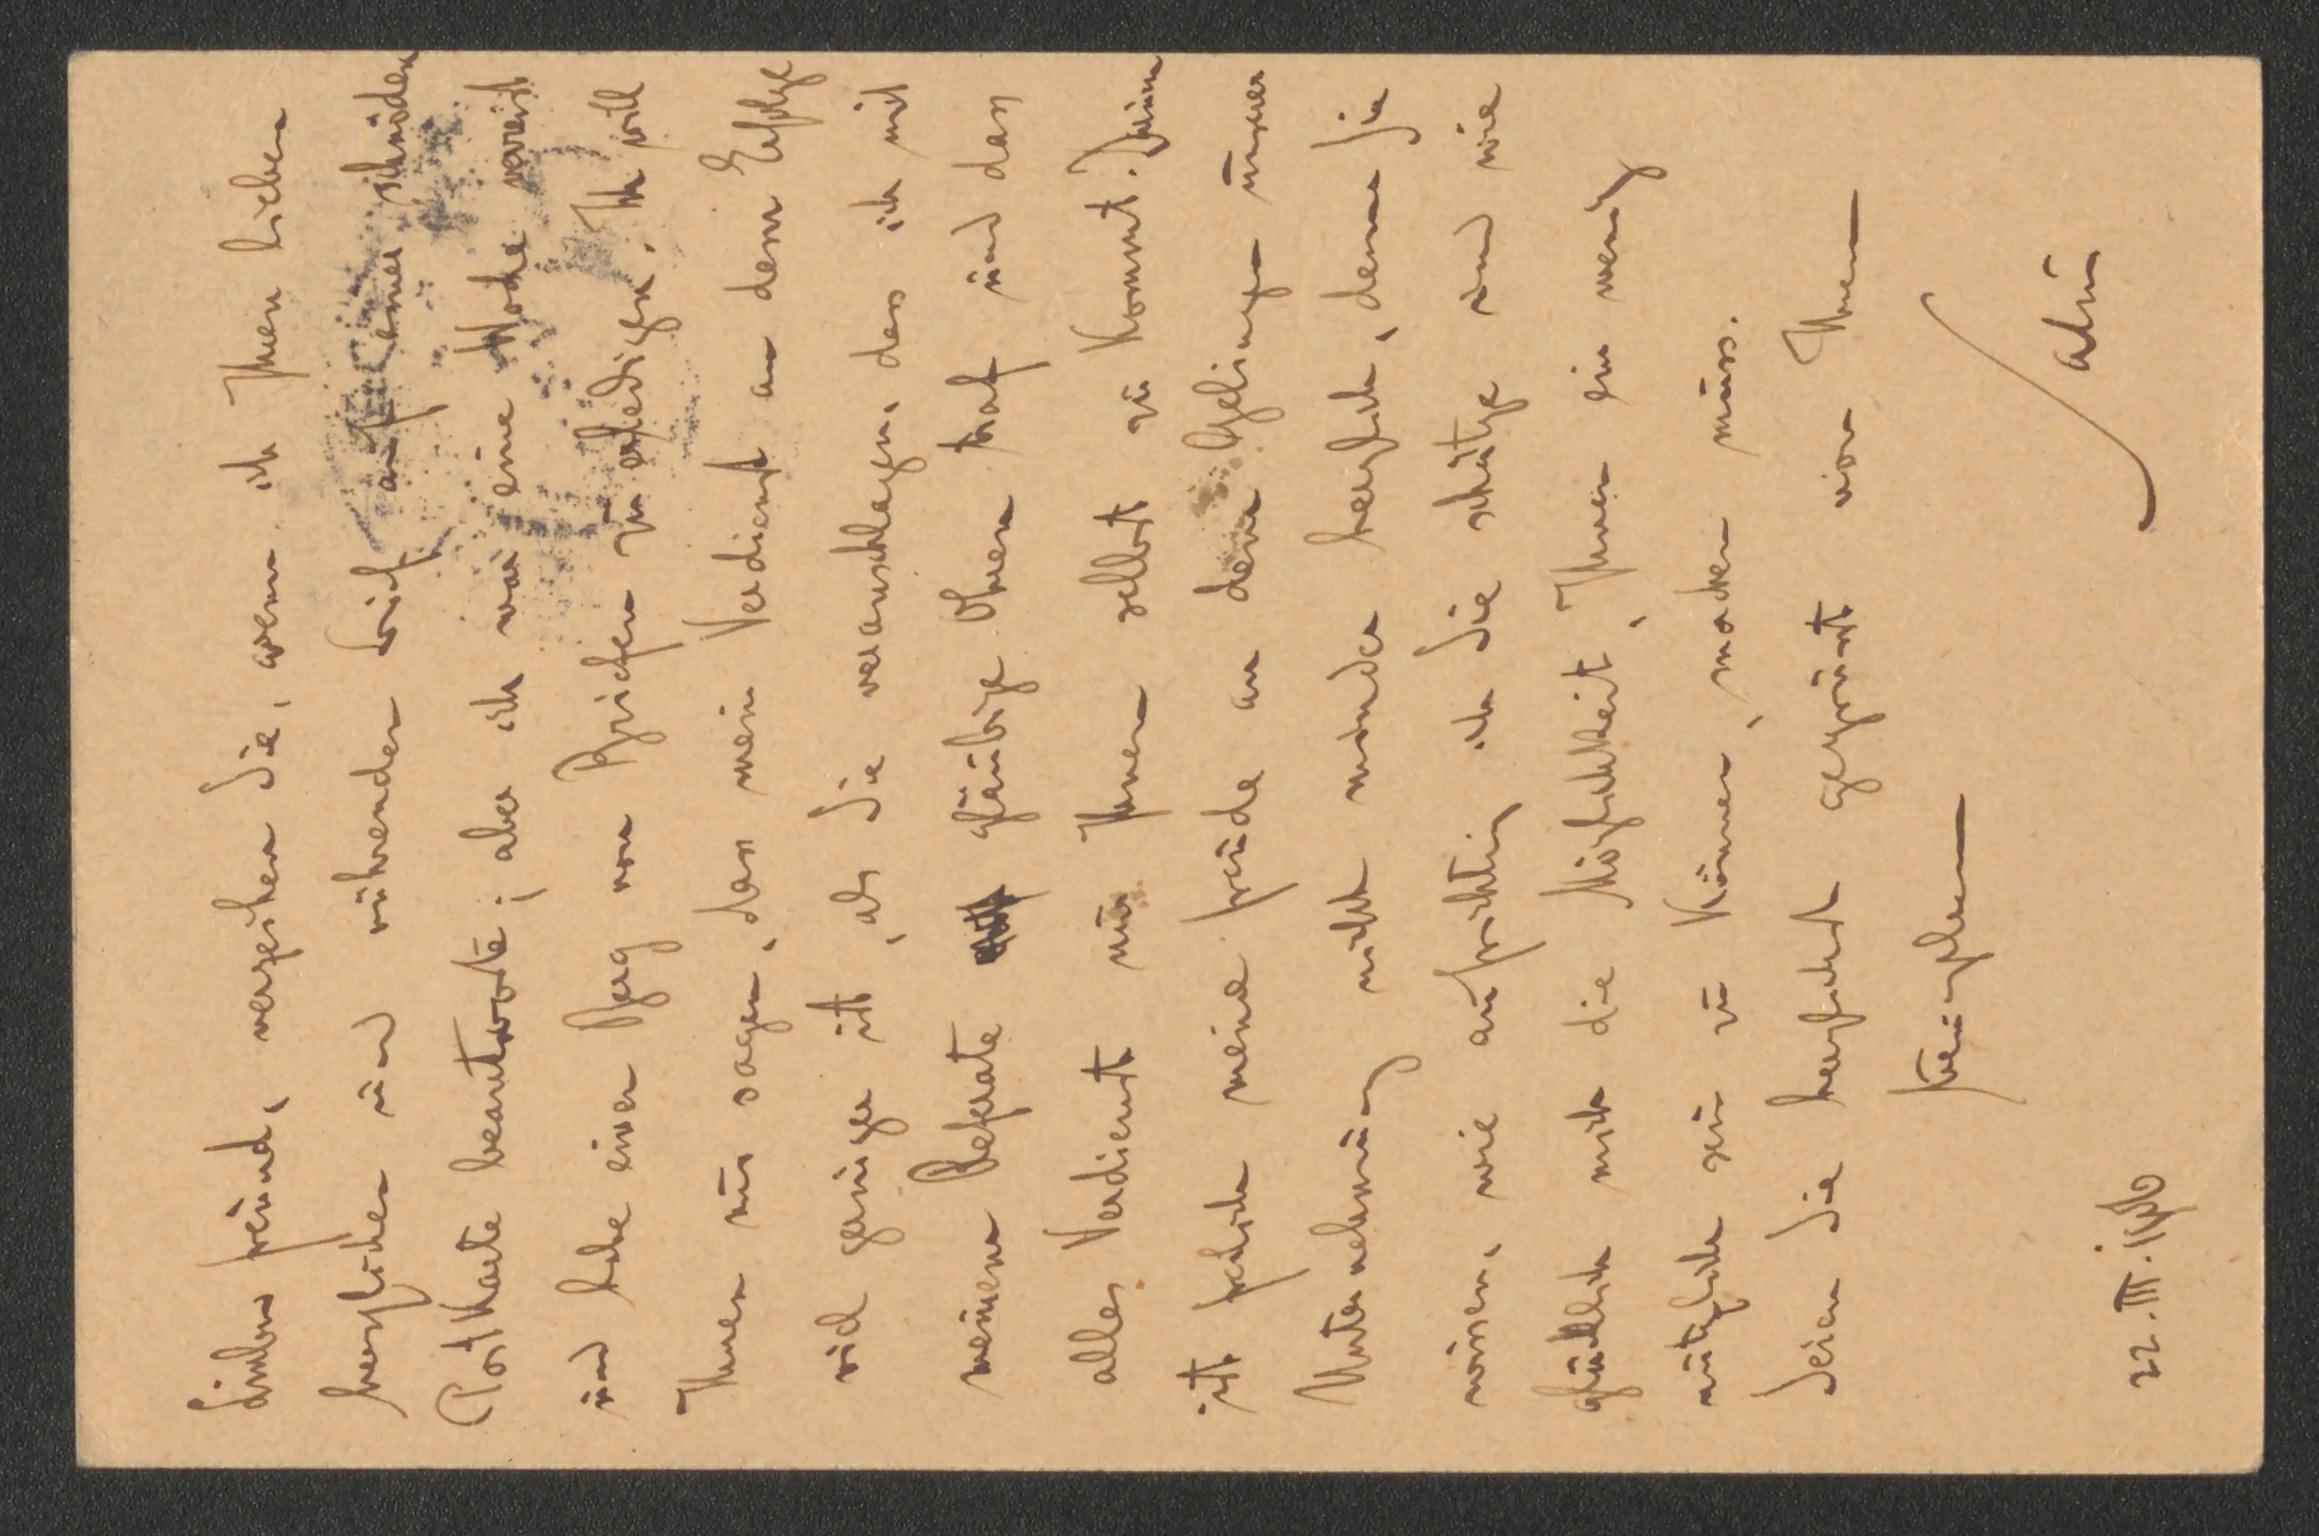 Lieber Freund, verzeihen Sie, wenn ich Ihren lieben
herzlichen und rührenden Brief auf einer schnöden
Postkarte beantworte; aber ich war eine Woche verreist
und habe einen Berg von Briefen zu erledigen. Ich will
Ihnen nur sagen, dass mein Verdienst an dem Erfolge
viel geringer ist, als Sie veranschlagen, dass ich mit
meinem Referate gläubige Ohren traf und dass
alles Verdienst nur Ihnen selbst zu kommt. Darum
ist jedoch meine Freude an dem Gelingen unserer
Unternehmung nicht minder herzlich, denn Sie
wissen, wie aufrichtig ich Sie schätze und wie
glücklich mich die Möglichkeit, Ihnen ein wenig
nützlich sein zu können, machen muss.
Seien Sie herzlichst gegrüsst von Ihrem
22. III.